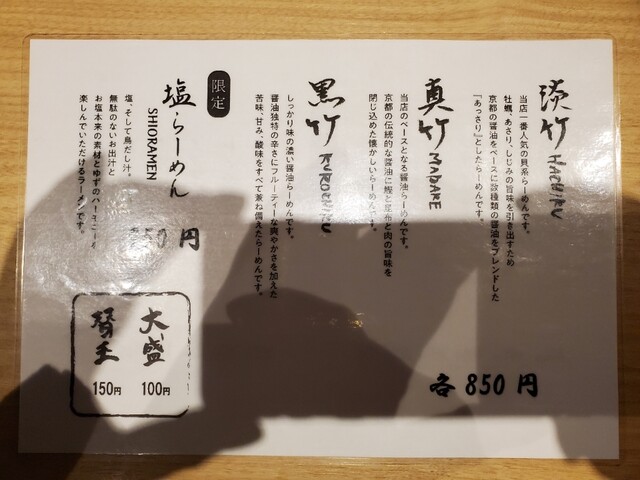 淡竹 HACHIKU
当店一番人気の貝系らーめんです。
牡蠣、あさり、しじみの旨味を引き出すため
京都の醤油をベースに数種類の醤油をブレンドした
『あっさり』としたらーめんです。
真竹 MADAKE
当店のベースとなる醤油らーめんです。
京都の伝統的な醤油に鰹と昆布と肉の旨味を
閉じ込めた懐かしいらーめんです。
黒竹 KUROCHIKU
しっかり味の濃い醤油らーめんです。
醤油独特の辛さにフルーティーな爽やかさを加えた
苦味、甘み、酸味をすべて兼ね備えたらーめんです。
各850円
限定
塩らーめん
SHIORAMEN
塩、そして鳥だし汁。
無駄のないお出汁と
お塩本来の素材とゆずのハーモニーを
楽しんでいただけるらーめんです。
50円
大盛 100円
替玉 150円